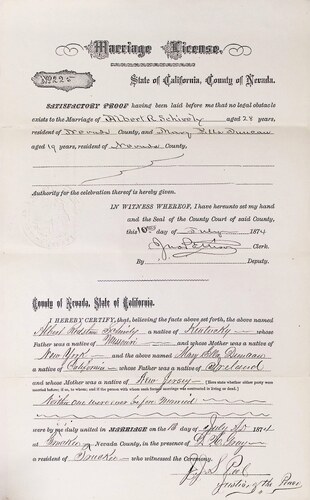 Marriage License.
No 225
State of California, County of Nevada.
SATISFACTORY PROOF having been laid before me that no legal obstacle
exists to the Marriage of Albert R Schively aged 28 years,
resident of Nevada County, and Mary Ella Duncan
aged 19 years, resident of Nevada County,
Authority for the celebration thereof is hereby given.
IN WITNESS WHEREOF, I have hereunto set my hand
and the Seal of the County Court of said County,
this 10th day of July 1874
Clerk.
By Deputy.
County of Nevada, State of California.
I HEREBY CERTIFY, that, believing the facts above set forth, the above named
Albert Schively a native of Kentucky whose
Father was a native of Missouri and whose Mother was a native of
New York and the above named Mary Ella Duncan
a native of California whose Father was a native of Ireland
and whose Mother was a Native of New Jersey
Neither one were ever before Married
were by me duly united in MARRIAGE on the day of July 1874
at Truckee Nevada County, in the presence of Gray
a resident of Truckee who witnessed the Ceremony.
Justice of the Peace